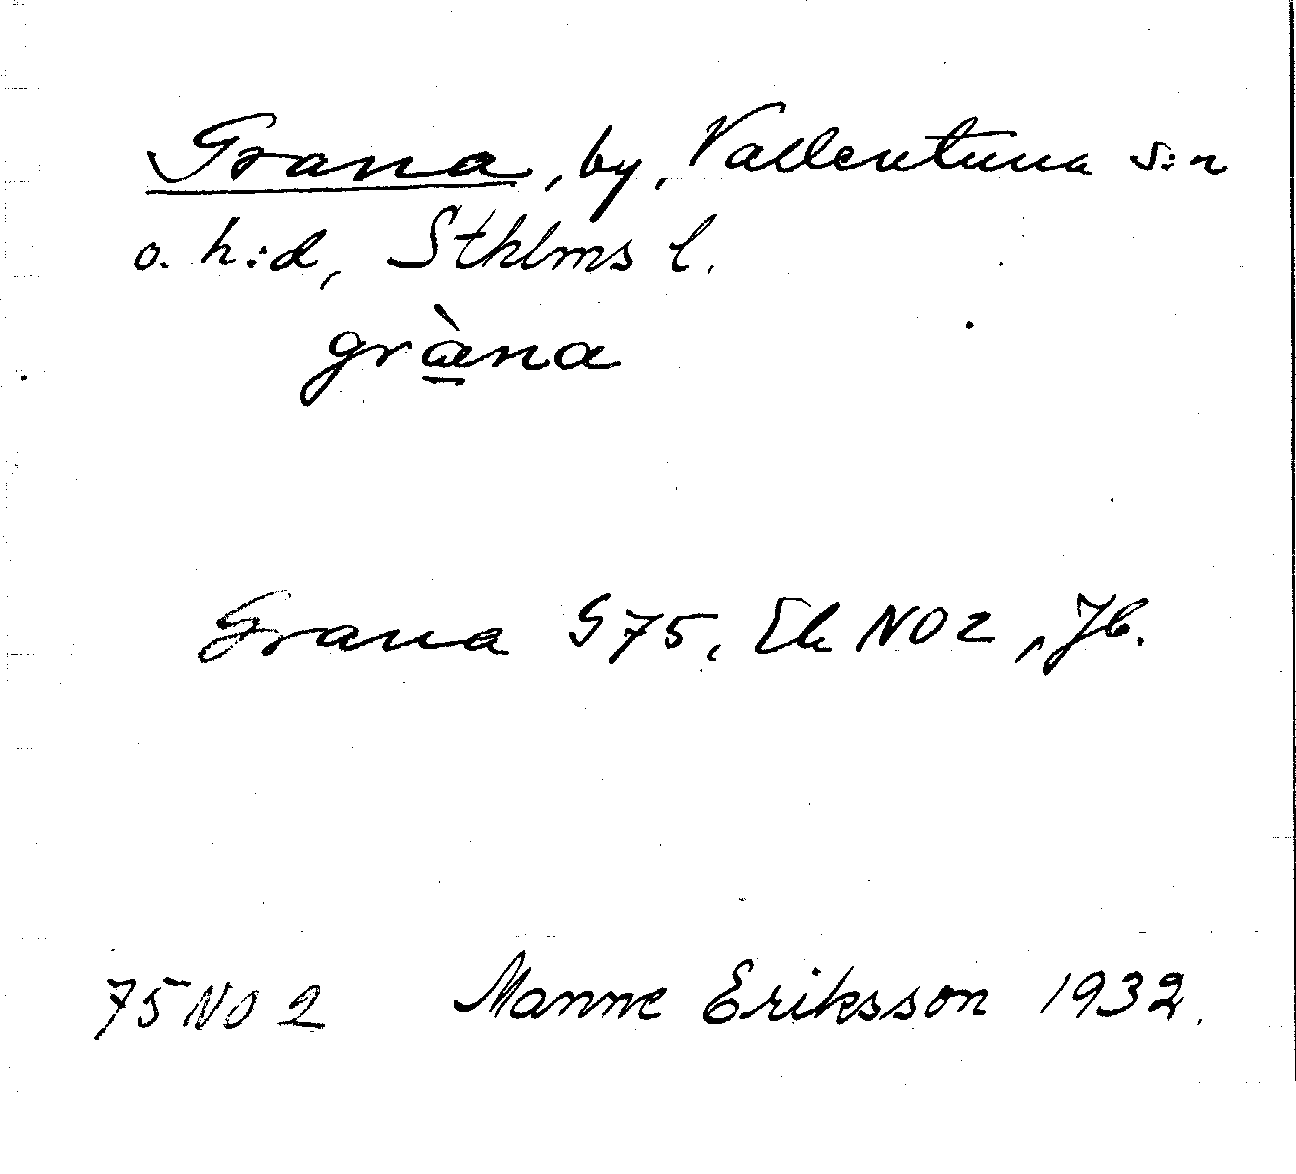 Grana, by, Vallentuna s:n
o. h:d, Sthlms l.
gràna
Grana G 75, Ek NO 2, Jb.
75 NO 2 Manne Eriksson 1932.